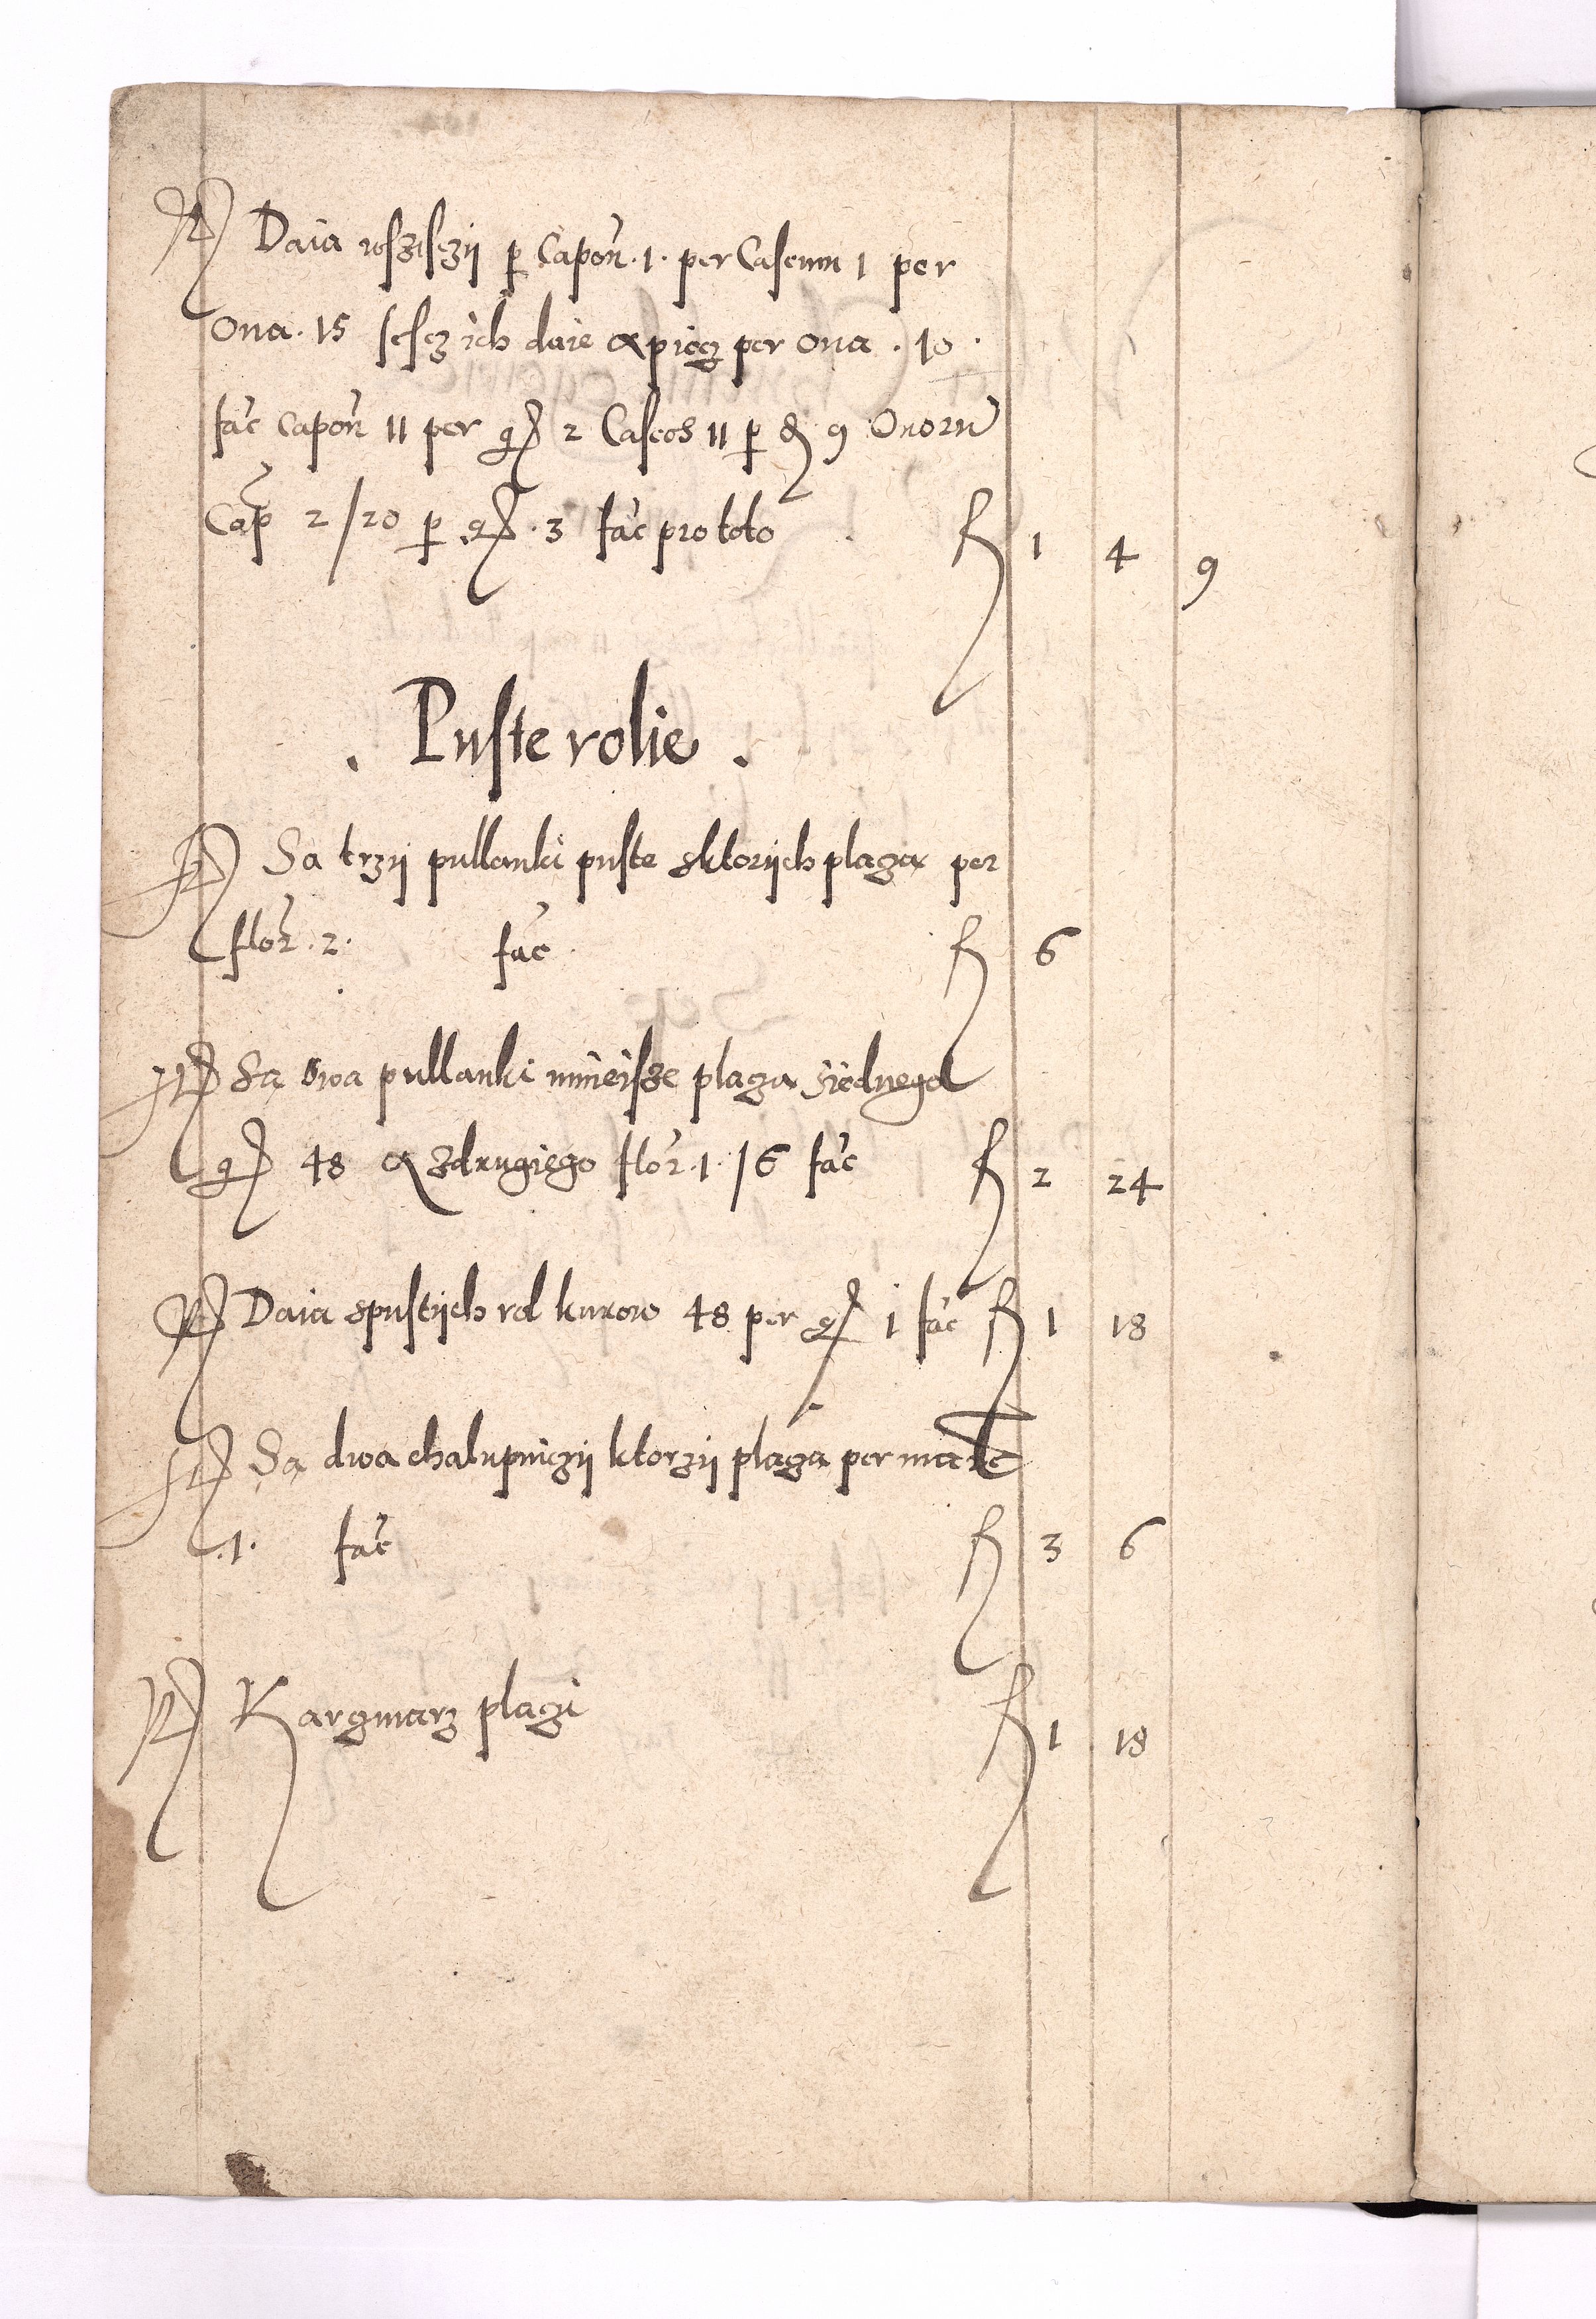 Daia wszisczÿ p Capon .1. per Caseum 1 per
Oua .15 sescz ich daie a piecz per oua .10.
fac Capon 11 per gr 2 Caseos 11 p d 9 Ouoru
Cap 2/20 p gr .3 fac pro toto fl 1 4 9
. Puste rolie .
Sa trzÿ pullanki puste sktorÿch placza per
flor .2. fac fl 6
Sa dwa pullanki mnieisze placza siednego
gr 48 a zdrugiego flor .1. /6 fac fl 2 24
Daia spustÿch rol kurow 48 per gr 1 fac fl 1 18
Sa dwa chalupniczÿ ktorzÿ placza per marc
.1. fac fl 3 6
Karczmarz placzi fl 1 18